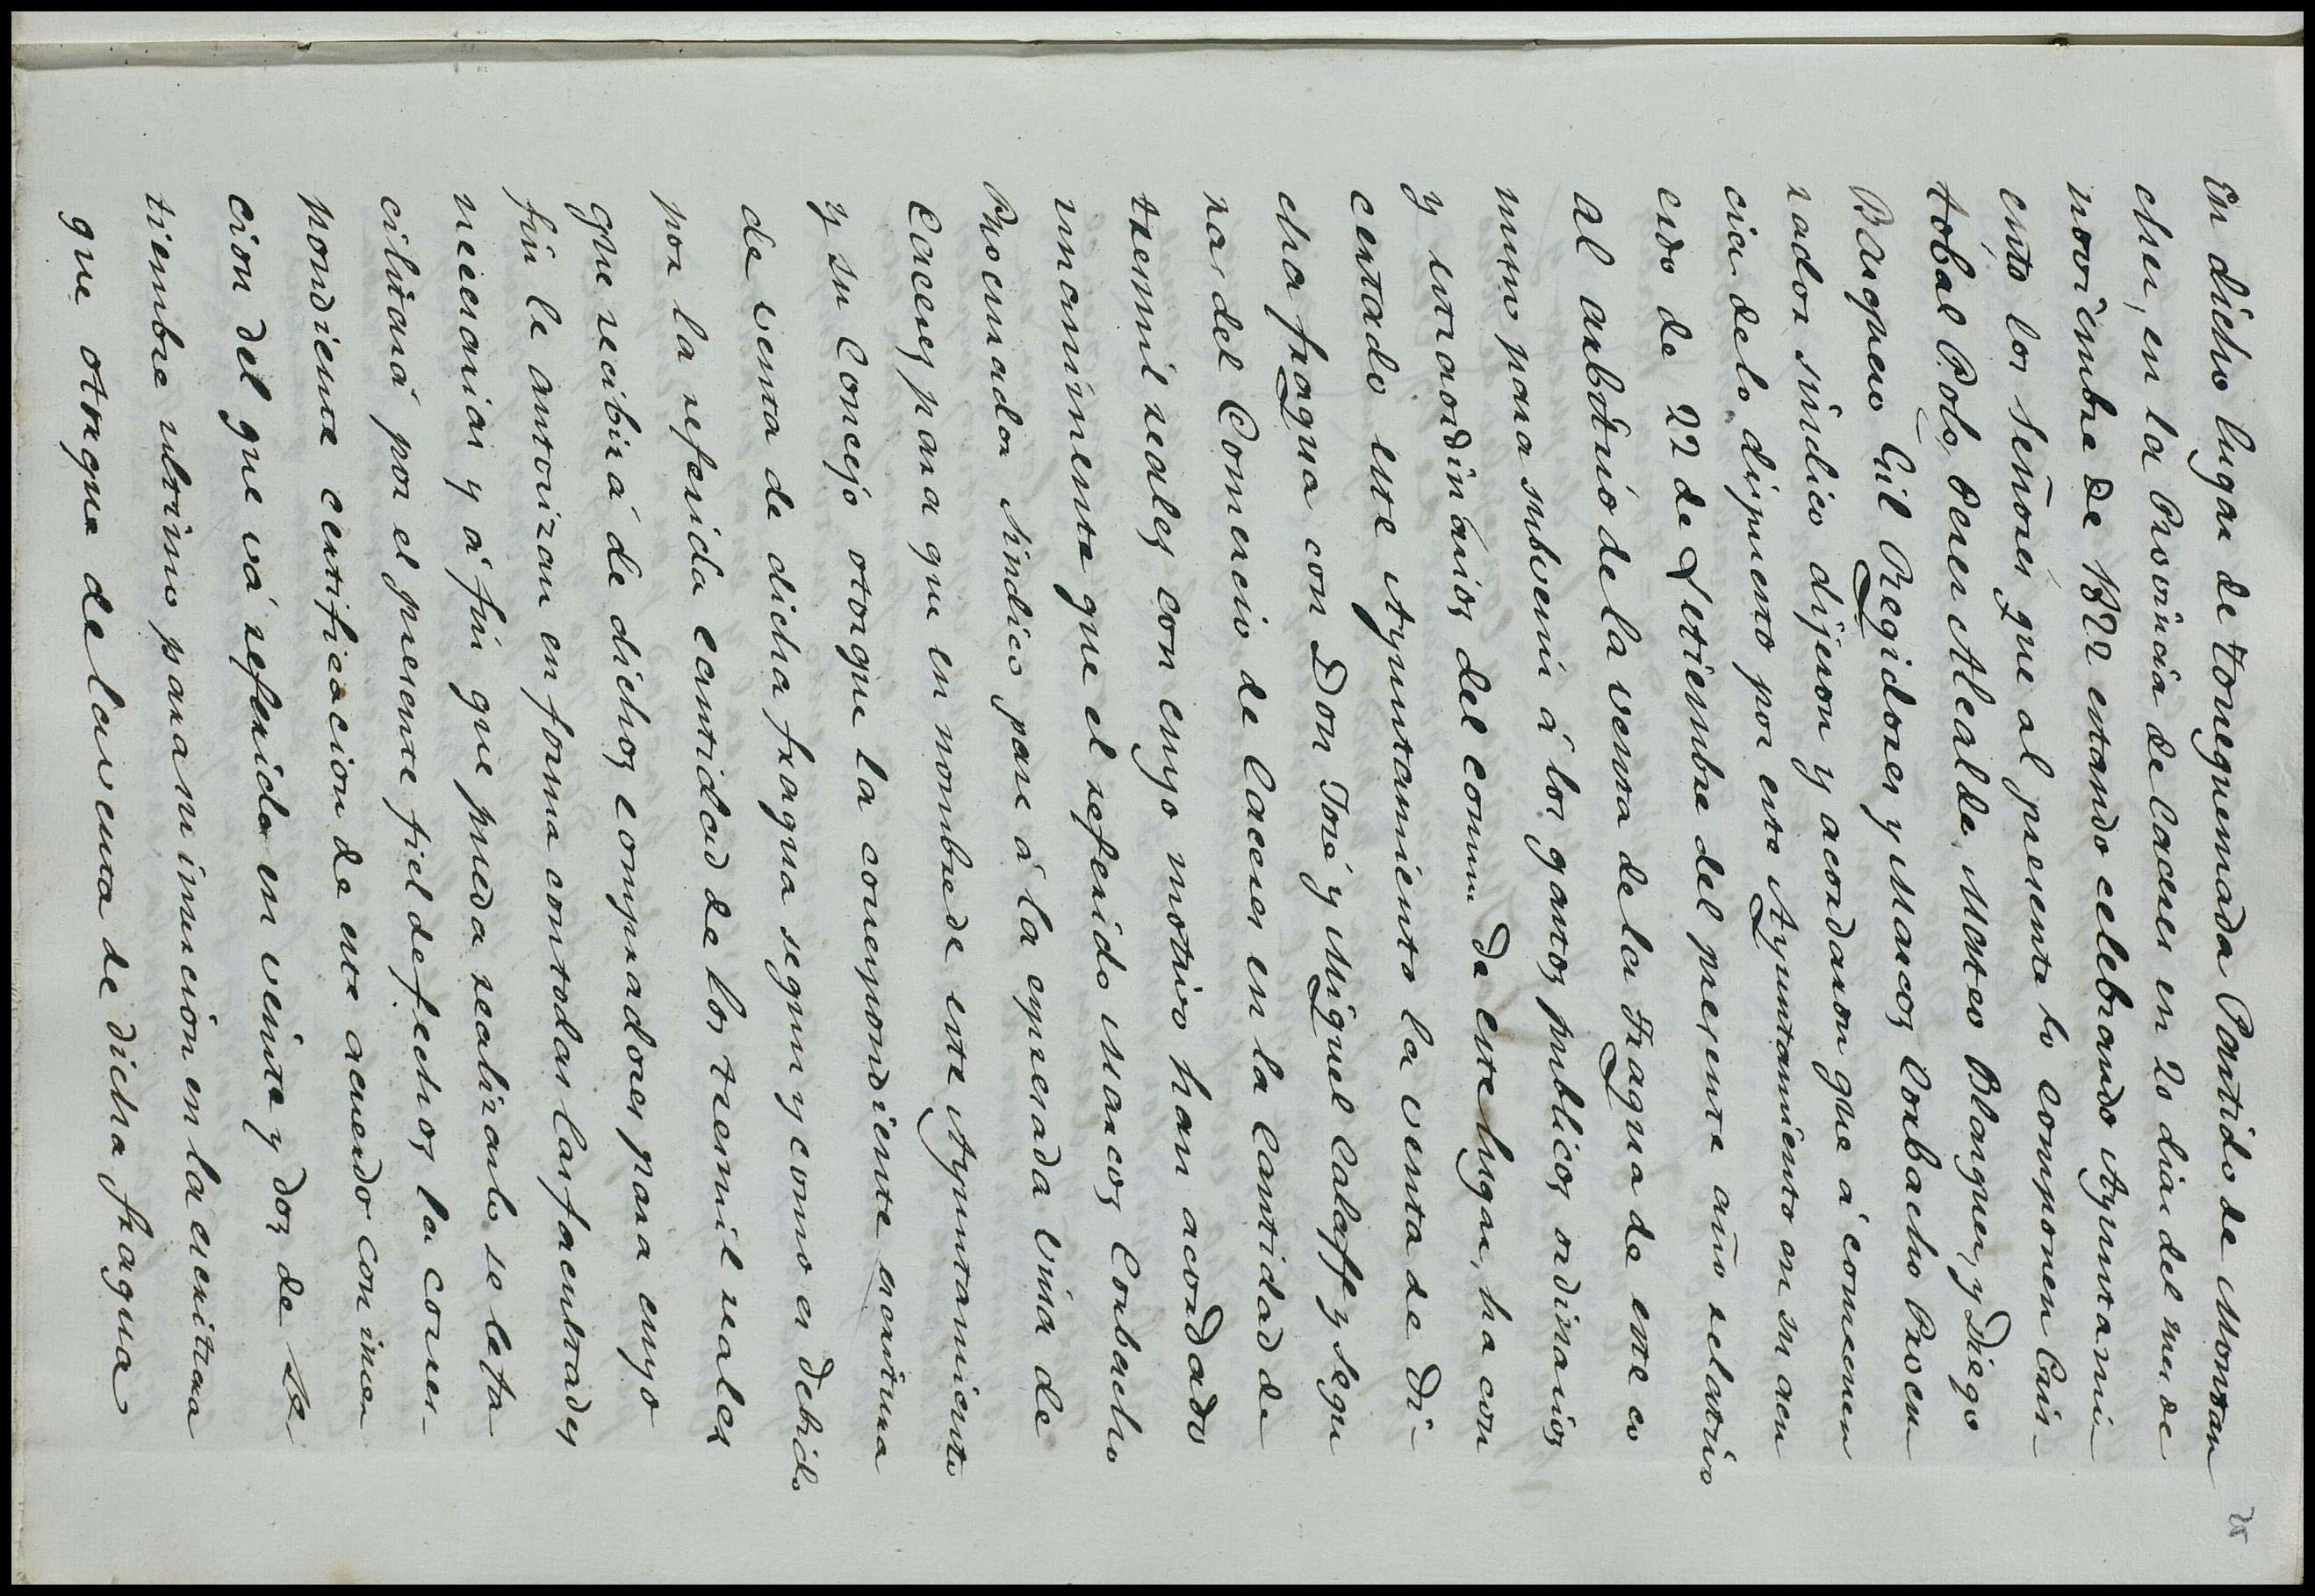 25
En dicho lugar de Torrequemada Partido de Montan
chez, en la Provincia de Caceres en 20 dias del mes de
noviembre de 1822 estando celebrando Ayuntami
ento los Señores que al presente lo componen Cris-
tobal Polo Perez Alcalde, Mateo Blazquez, y Diego
Baquero Gil Regidores y Marcos Corbacho Procu
rador sindico dijeron y acordaron que á consecuen
cia de lo dispuesto por este Ayuntamiento en su acu
erdo de 22 de Setiembre del presente año relativo
al arbitrio de la venta de la Fragua de este co
mun para subvenir á los gastos publicos ordinarios
y extraordinarios del comun de este lugar, ha con
certado este Ayuntamiento la venta de di-
cha fragua con Don José y Miguel Calaff y Segu
ra del Comercio de Caceres en la Cantidad de
tres mil reales con cuyo motivo han acordado
unanimente que el referido Marcos Corbacho
Procurador Sindico pase á la expresada Villa de
Caceres para que en nombre de este Ayuntamiento
y su Concejo otorgue la correspondiente escritura
de venta de dicha fragua segun y como es debido
por la referida cantidad de los tres mil reales
que recibirá de dichos compradores para cuyo
fin le autorizan en forma con todas las facultades
necesarias y á fin que pueda realizarlo se le fa
cilitará por el presente fiel de fechos la corres-
pondiente certificacion de este acuerdo con incer
cion del que vá referido en veinte y dos de Se
tiembre ultimo para su insercion en la escritura
que otorgue de la venta de dicha fragua